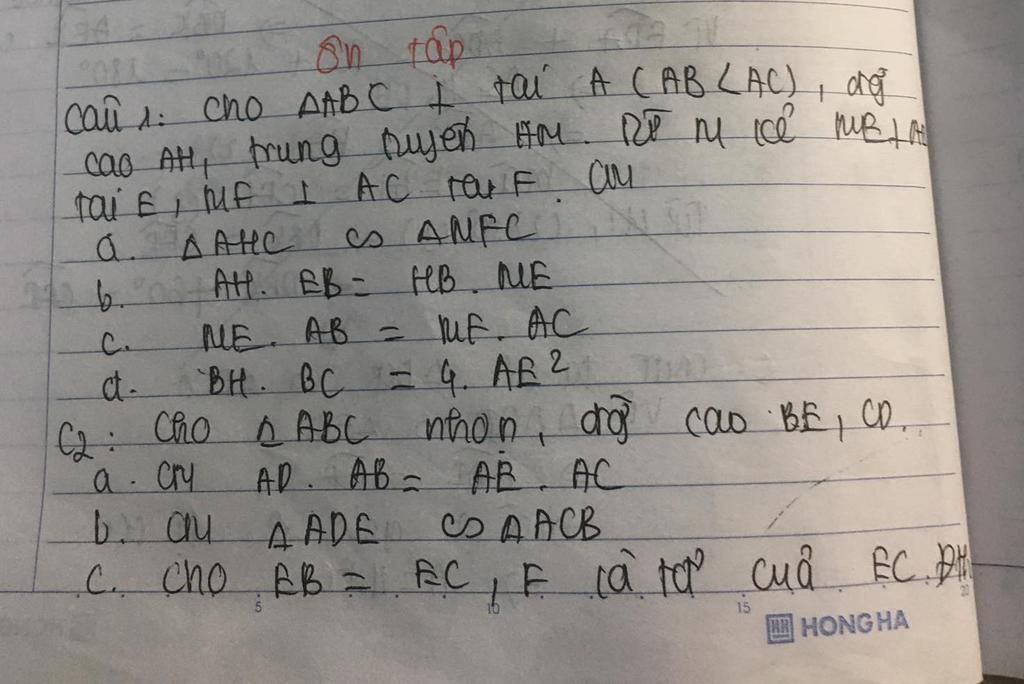 Ôn tập
Câu 1: Cho ΔABC ⊥ tại A (AB < AC), đg
cao AH, trung tuyến AM. Từ M kẻ ME ⊥
tại E, MF ⊥ AC tại F. CM
a. ΔAHC ∽ ΔMFC
b. AH. EB = HB. ME
c. ME. AB = MF. AC
d. BH. BC = 4. AE²
C2: Cho ΔABC nhọn, đg cao BE, CD.
a. CM AD. AB = AE. AC
b. CM ΔADE ∽ ΔACB
c. Cho EB = EC, F là tđ của EC.
5 10 15 20
HH HONG HA